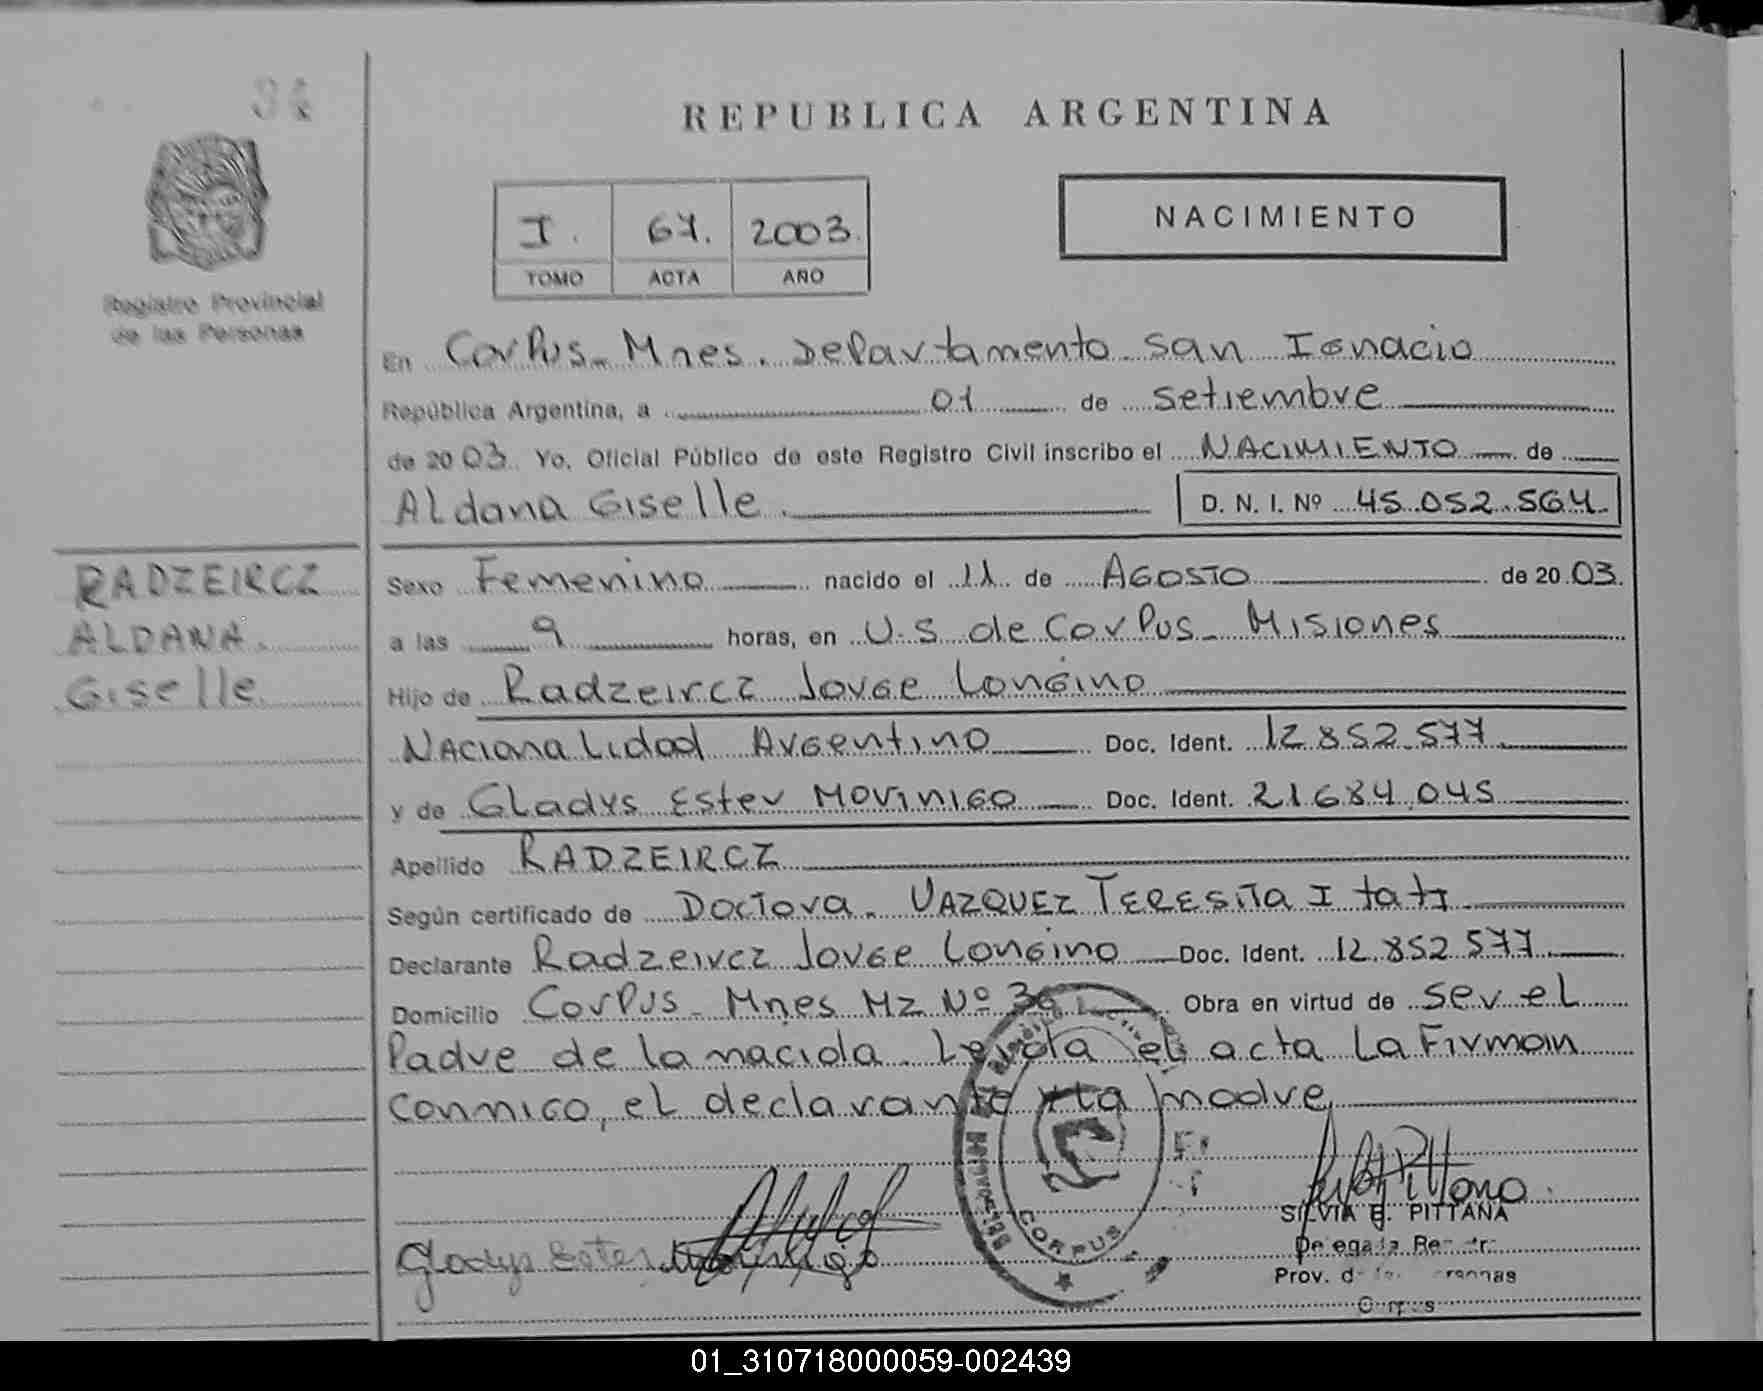 REPUBLICA ARGENTINA
Registro Provincial
de las Personas
I. 67. 2003.
TOMO ACTA AÑO
NACIMIENTO
En Corpus - Mnes. Departamento San Ignacio
República Argentina, a 01 de Setiembre
de 2003. Yo, Oficial Público de este Registro Civil inscribo el NACIMIENTO de
Aldana Giselle. D. N. I. Nº 45.052.564.
RADZEIRCZ
ALDANA
Giselle
Sexo Femenino nacido el 11 de AGOSTO de 2003.
a las 9 horas, en U.S de Corpus - Misiones
Hijo de Radzeircz Jorge Longino
Nacionalidad Argentino Doc. Ident. 12.852.577
y de Gladys Ester Morinigo Doc. Ident. 21.684.045
Apellido RADZEIRCZ
Según certificado de Doctora. VAZQUEZ TERESITA Itati
Declarante Radzeircz Jorge Longino Doc. Ident. 12.852.577
Domicilio Corpus - Mnes Mz Nº Obra en virtud de Ser el
Padre de la nacida. Leida el acta La Firman
conmigo, el declarante y la madre
CORPUS
Gladys Ester
SILVIA E. PITTANA
Delegada
Prov. de
Corpus
01_310718000059-002439